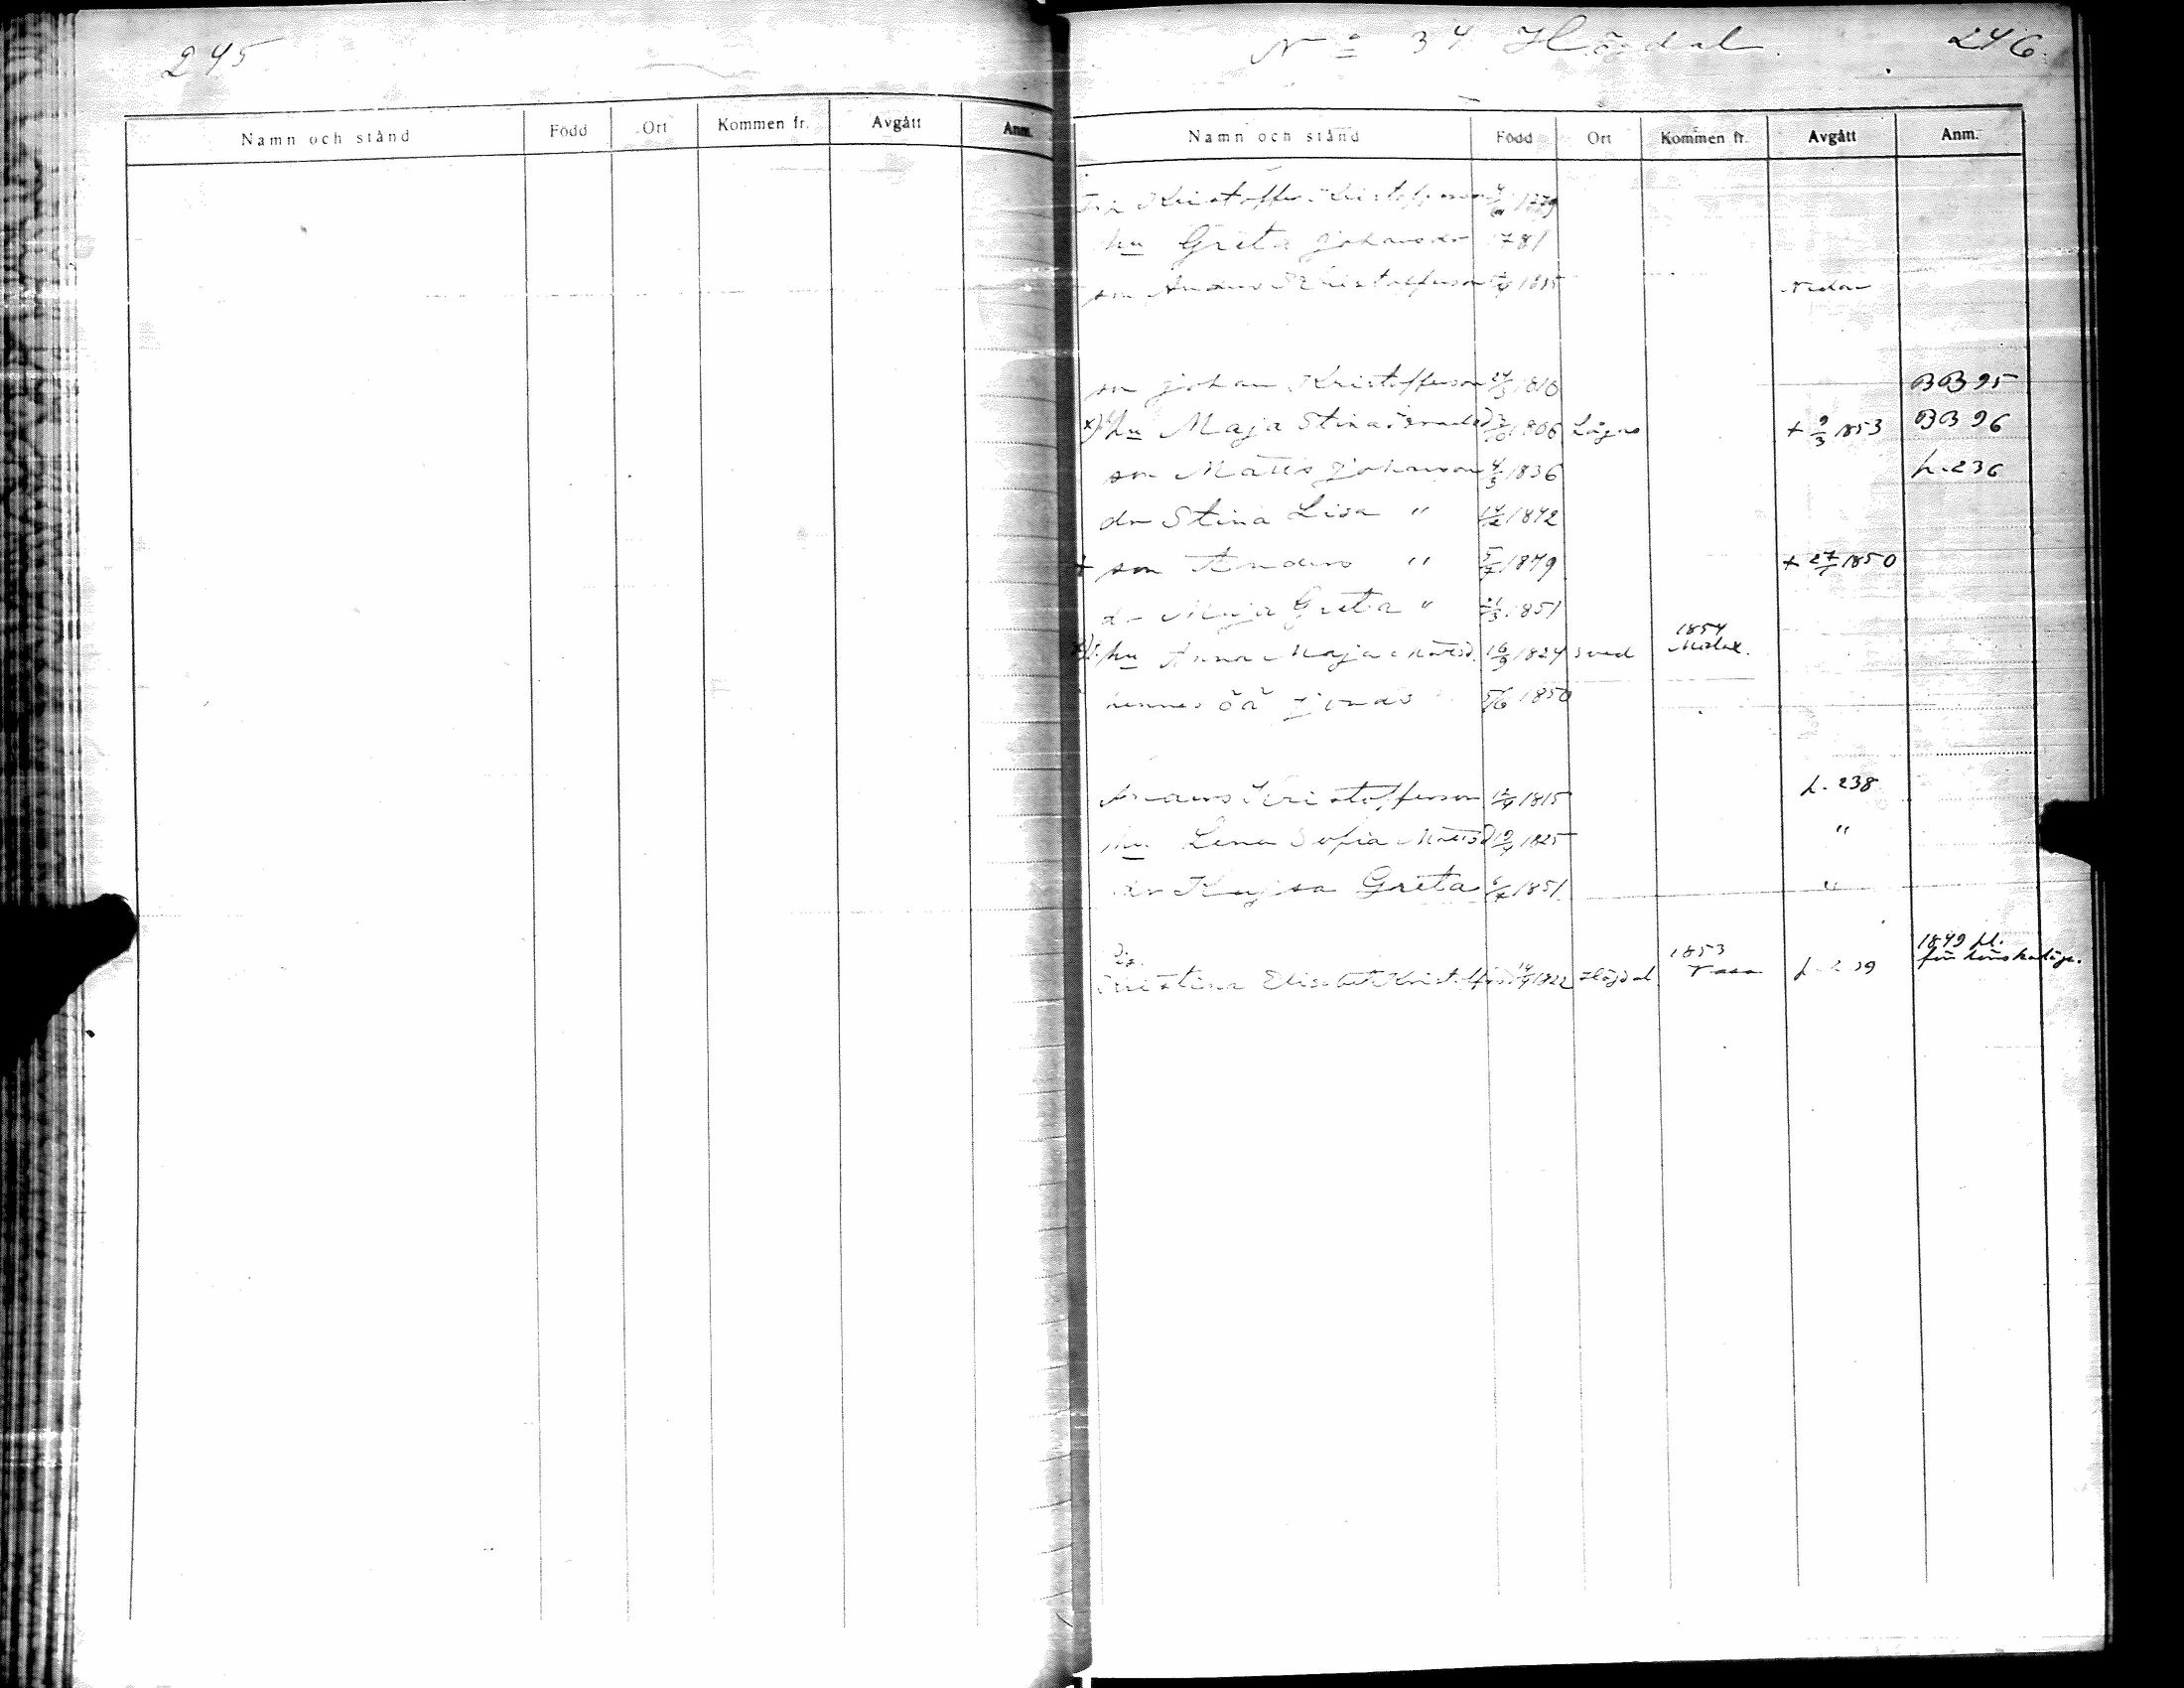 245
Namn och stånd Född Ort Kommen fr. Avgått Anm.
No 34 Högdal. 246.
Namn och stånd Född Ort Kommen fr. Avgått Anm.
Kristoffer Kristofferson 1779
hu Greta Johansdr 1781
son Anders Kristofferson 1815 Nedan
son Johan Kristofferson 24/3 1810 BB 95
x) hu Maja Stina 1806 + 9/3 1853 BB 96
son Matts Johanson 4/3 1836 L. 236
dr Stina Lisa " 1842
+ son Anders " 5/7 1849 + 27/1 1850
dr Maja Greta " 1851
1854
x) hu Anna Maja Mattsd. 16/9 1824 Malax.
hennes oä Jonas 5/6 1850
Anders Kristofferson 1815 L. 238
hu Lena Sofia Mattsd 1825 "
dr Kajsa Greta 1851 "
1853 1849 pl.
Kristina Elisabet 1822 Högdal Vasa L. 239 för lönskaläge.